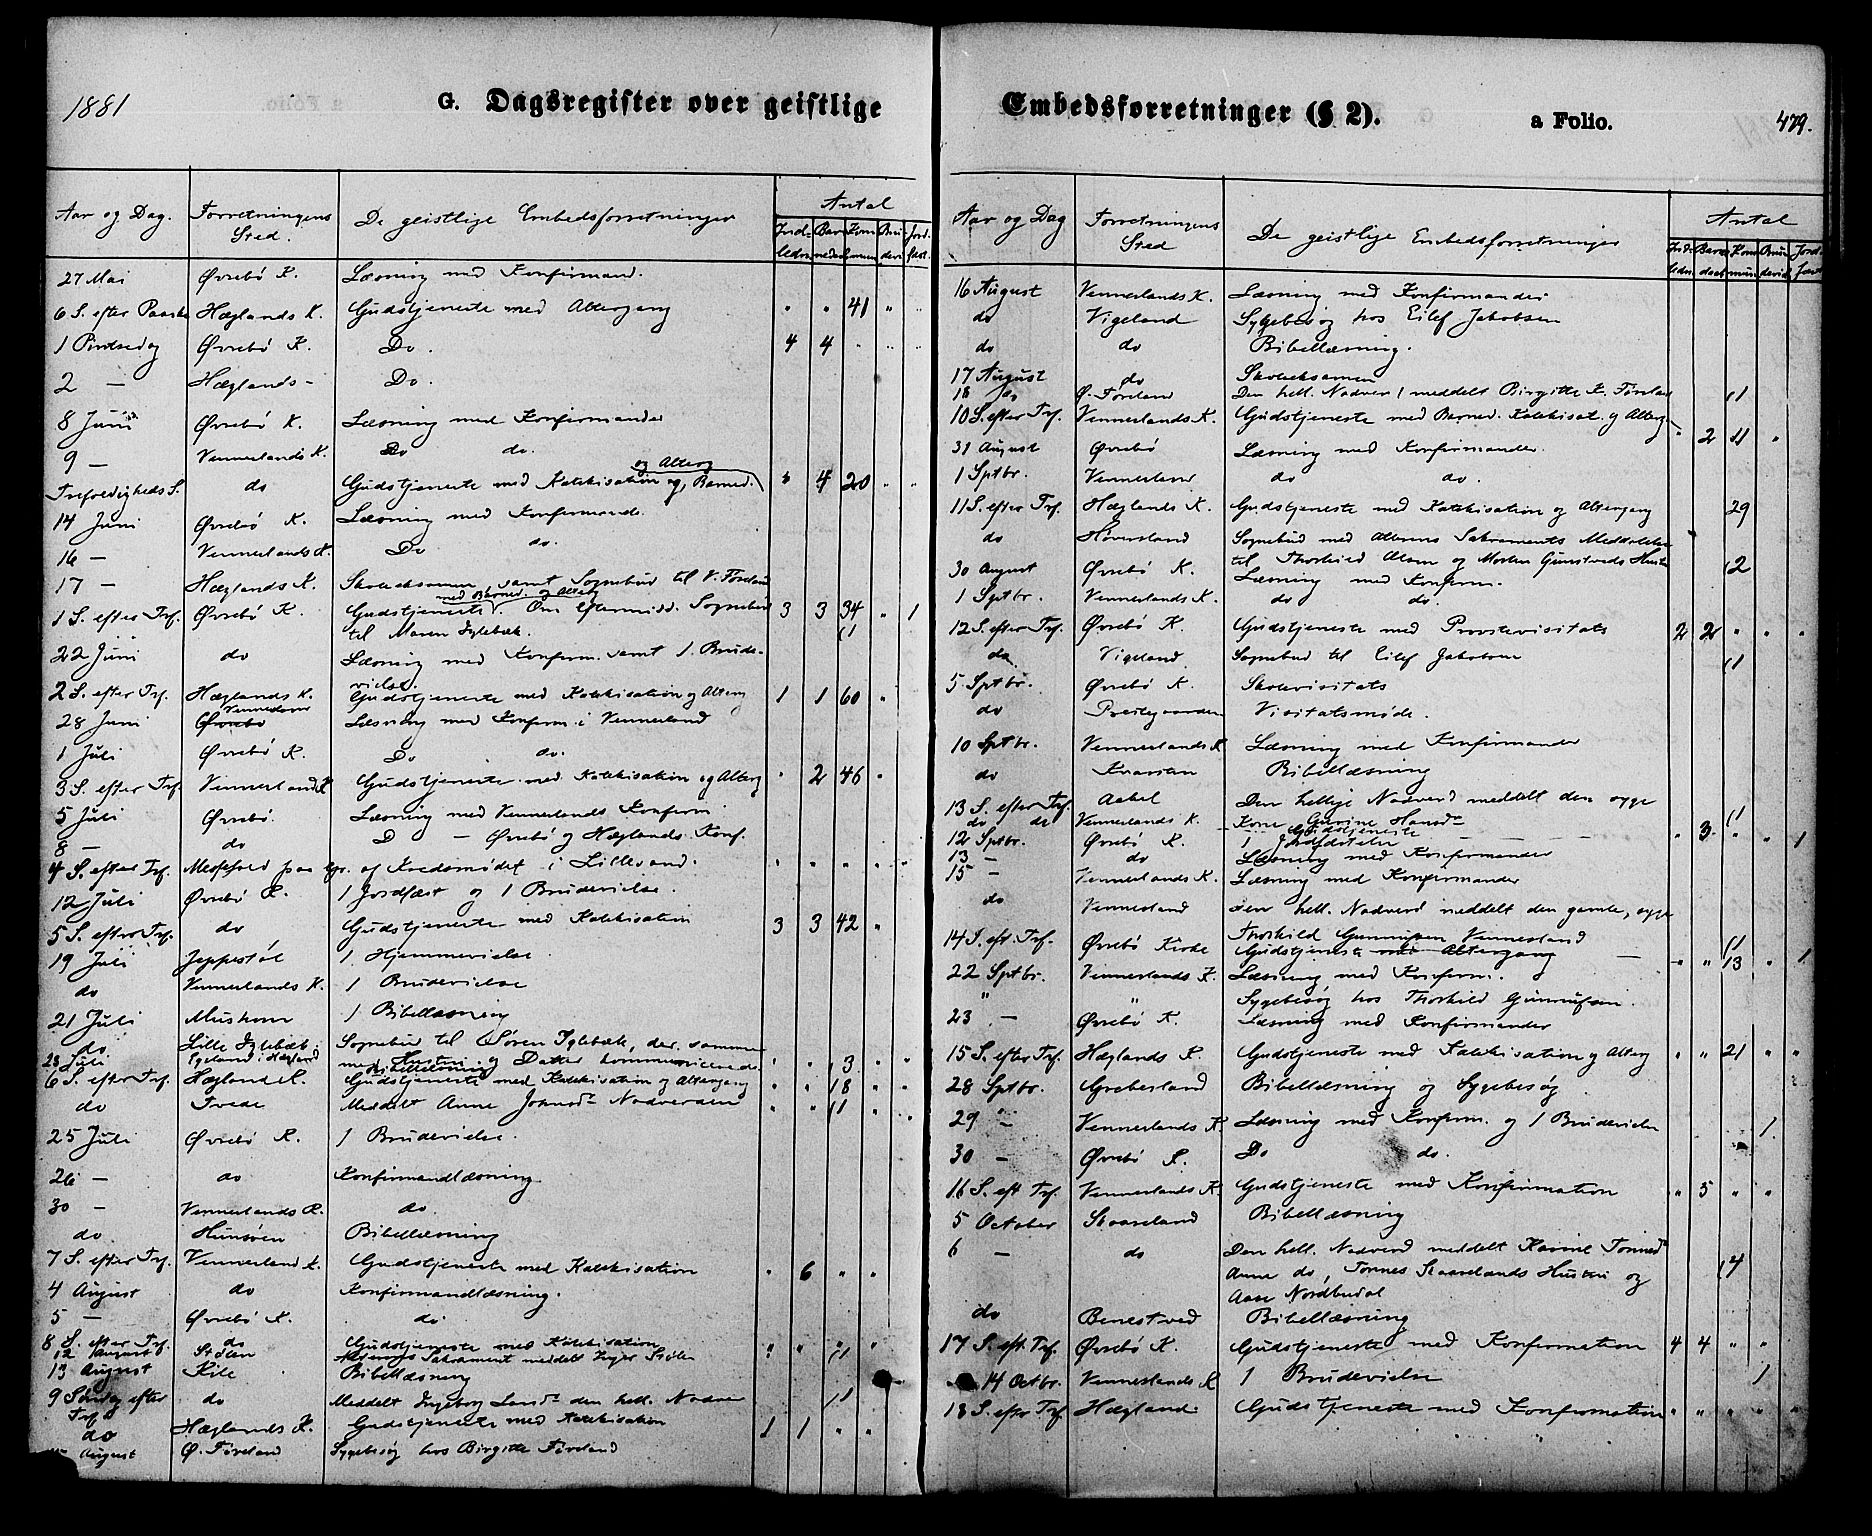 1881
G. Dagsregister over geistlige
Aar og Dag. Forretningens Sted. De geistlige Embedsforretninger Antal
Indledn. Barnedaab Kommun. Brudevi. Jordfæst.
27 Mai Øvrebö K. Læsning med Konfirmand.
6 S. efter Paaske Hæglands K. Gudstjeneste med Altergang " " 41 " "
1 Pintsedag Øvrebö K. Do. 4 4 " " "
2 — Hæglands - Do.
8 Juni Øvrebö K. Læsning med Konfirmander
9 — Vennerlands K. Do do.
og Alterg
Trefoldigheds S. do Gudstjeneste med Katekisation og Barned. " 4 20 " "
14 Juni Øvrebö K. Læsning med Konfirmand.
16 — Vennerlands K. Do do.
17 — Hæglands K. Skoleeksamen, samt Sognebud til V. Föreland
med Barned. og Alterg
1 S. efter Trf. Øvrebö K. Gudstjeneste. Om Eftermidd. Sognebud 3 3 34 " 1
til Maren Iglebæk. (1
22 Juni do Læsning med Konfirm. samt 1 Brude-
vielse.
2 S. efter Trf. Hæglands K. Gudstjeneste med Katekisation og Alterg 1 1 60 "
Vennerland
28 Juni Øvrebö Læsning med Konfirm. i Vennerland
1 Juli Øvrebö K. Do do.
3 S. efter Trf. Vennerland K Gudstjeneste med Katekisation og Alterg " 2 46 "
5 Juli Øvrebö. Læsning med Vennerlands Konfirm
8 — do D — Øvrebö og Hæglands Konf.
4 S. efter Trf. Messefald paa Gr. af Kredsmödet i Lillesand. " " " " "
12 Juli Øvrebö K. 1 Jordfæst og 1 Brudevielse.
5 S. efter Trf. do Gudstjeneste med Katekisation 3 3 42 "
19 Juli Jeppestöl 1 Hjemmevielse
do Vennerlands K. 1 Brudevielse
21 Juli Mushom 1 Bibellæsning
do Lille Iglebæk Sognebud til Sören Iglebæk, der sammen
23 Juli i Hægland med Hustru og Datter kommunicerede " " 3 " "
Bibellæsning
6 S. efter Trf. Hægland K. Gudstjeneste med Katekisation og Altergang " " 18 " "
do Tvede Meddelt Anne Johnsd. Nadverden " " (1 " "
25 Juli Øvrebö K. 1 Brudevielse.
26 — do Konfirmandlæsning
30 — Vennerlands K. do.
do Hunsöen Bibellæsning
7 S. efter Trf. Vennerland K. Gudstjeneste med Katekisation " 6 " "
4 August do Konfirmandlæsning.
5 — Øvrebö K. do.
8 S. efter Trf. do Gudstjeneste med Katekisation " " " "
12 August Stölen Alterens Sakrament meddelt Inger Stölen (1
13 August Kile Bibellæsning
9 Söndag efter Trf do Meddelt Ingeborg den hell. Nadver (1
do Hæglands K. Gudstjeneste med Katekisation 1 1 " "
August Ø. Föreland Sygebesög hos Birgitte Föreland
Embedsforretninger (§ 2).
a Folio. 479.
Aar og Dag Forretningens Sted De geistlige Embedsforretninger Antal
Indledn. Barnedaab Kommun. Brudevi. Jordfæst
16 August Vennerlands K. Læsning med Konfirmander
do Vigeland Sygebesög hos Eilef Jakobsen
do do Bibellæsning.
17 August do Skoleeksamen
18 do Ø. Föreland Den hell. Nadver meddelt Birgitte K. Föreland (1
10 S. efter Trf. Vennerlands K. Gudstjeneste med Barned. Katekisat. og Alterg. " 2 11 "
31 August Øvrebö Læsning med Konfirmander.
1 Sptbr. Vennerland do do.
11 S. efter Trf. Hæglands K. Gudstjeneste med Katekisation og Altergang 29
do Sognebud med Alterens Sakraments Meddelelse
til Thorkild Olsen og Morten Gunstveds Hustru (2
30 August Øvrebö K. Læsning med Konfirm.
1 Sptbr. Vennerlands K. do do.
12 S. efter Trf. Øvrebö K. Gudstjeneste med Provstevisitats 2 2 " " "
do Vigeland Sognebud til Eilef Jakobsen (1
5 Sptbr. Øvrebö K. Skolevisitats
do Prestegaarden Visitatsmöde.
10 Sptbr. Vennerlands K Læsning med Konfirmander
do Kvarsten Bibellæsning
13 S. efter Trf. Aabel Den hellige Nadverd meddelt den syge
do do Vennerlands K. Kone Gurine Hansd. (1
Gudstjeneste — " 3 " "
12 Sptbr. Øvrebö K. 1 Jordfæstelse 1
13 — do Læsning med Konfirmander
15 — Vennerlands K. Læsning med Konfirmander
do Vennerland den hell. Nadverd meddelt den gamle, syge
Thorkild Gunnufsen Vennerland (1
14 S. eft. Trf. Øvrebö Kirke Gudstjeneste med Altergang — " " 13 " 1
22 Sptbr. Vennerlands K. Læsning med Konfirm.
" " Sygebesög hos Thorkild Gunnufsen.
23 — Øvrebö K. Læsning med Konfirmander
15 S. efter Trf. Hæglands K. Gudstjeneste med Katekisation og Alterg " " 21 " "
28 Sptbr. Grebesland Bibellæsning og Sygebesög
29 " Vennerlands K. Læsning med Konfirm. og 1 Brudevielse 1
30 — Øvrebö K. Do do.
16 S. eft Trf. Vennerlands K. Gudstjeneste med Konfirmation " 5 " "
5 October Skaareland Bibellæsning
6 — do Den hell. Nadverd meddelt Karine Tormod
Anne do, Tornes Skaarelands Hustru og (4
Aase Nordbudal
do Benestved Bibellæsning
17 S. eft. Trf. Øvrebö K. Gudstjeneste med Konfirmation 4 4 " "
14 Octbr. Vennerlands K 1 Brudevielse 1
18 S. efter Trf. Hægland. Gudstjeneste med Konfirmation " " " " "